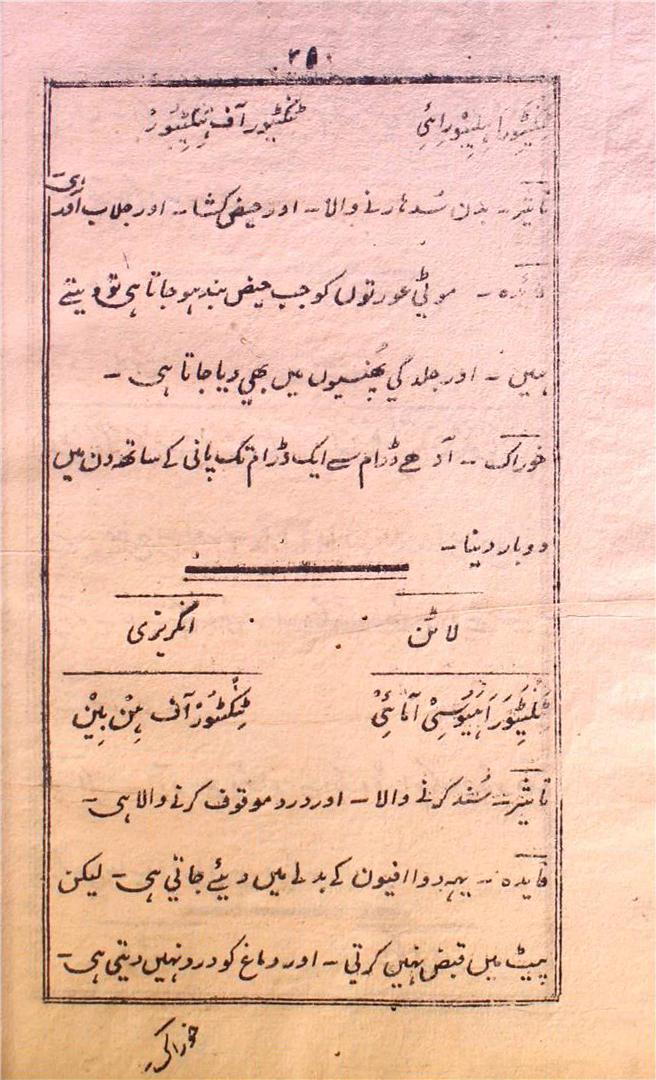 ۲۵۰
ٹنکٹیورا ہلیبورائی ٹنکٹیور آف
تاثیر ۔ بدن سُدہارنے والا ۔ اور حیض کشا ۔ اور جلاب آور ہی
فایٔدہ ۔ موٹی عورتوں کو جب حیض بند ہو جاتا ہی تو دیتے
ہیں ۔ اور جلد کی پُھنسیوں میں بھی دیا جاتا ہی ۔
خوراک ۔ آدھے ڈرام سے ایک ڈرام تک پانی کے ساتھ دن میں
دو بار دینا ۔
لاٹن انگریزی
ٹنکیٹور اہیوسی آمائی ٹنکٹیور آف ہن بین
تاثیر ۔ سُند کرنے والا ۔ اور درد موقوف کرنے والا ہی ۔
فایدہ ۔ یہہ دوا افیون کے بدلے میں دیئے جاتی ہی ۔ لیکن
پیٹ میں قبض نہیں کرتی ۔ اور دماغ کو درد نہیں دیتی ہی ۔
خوراک